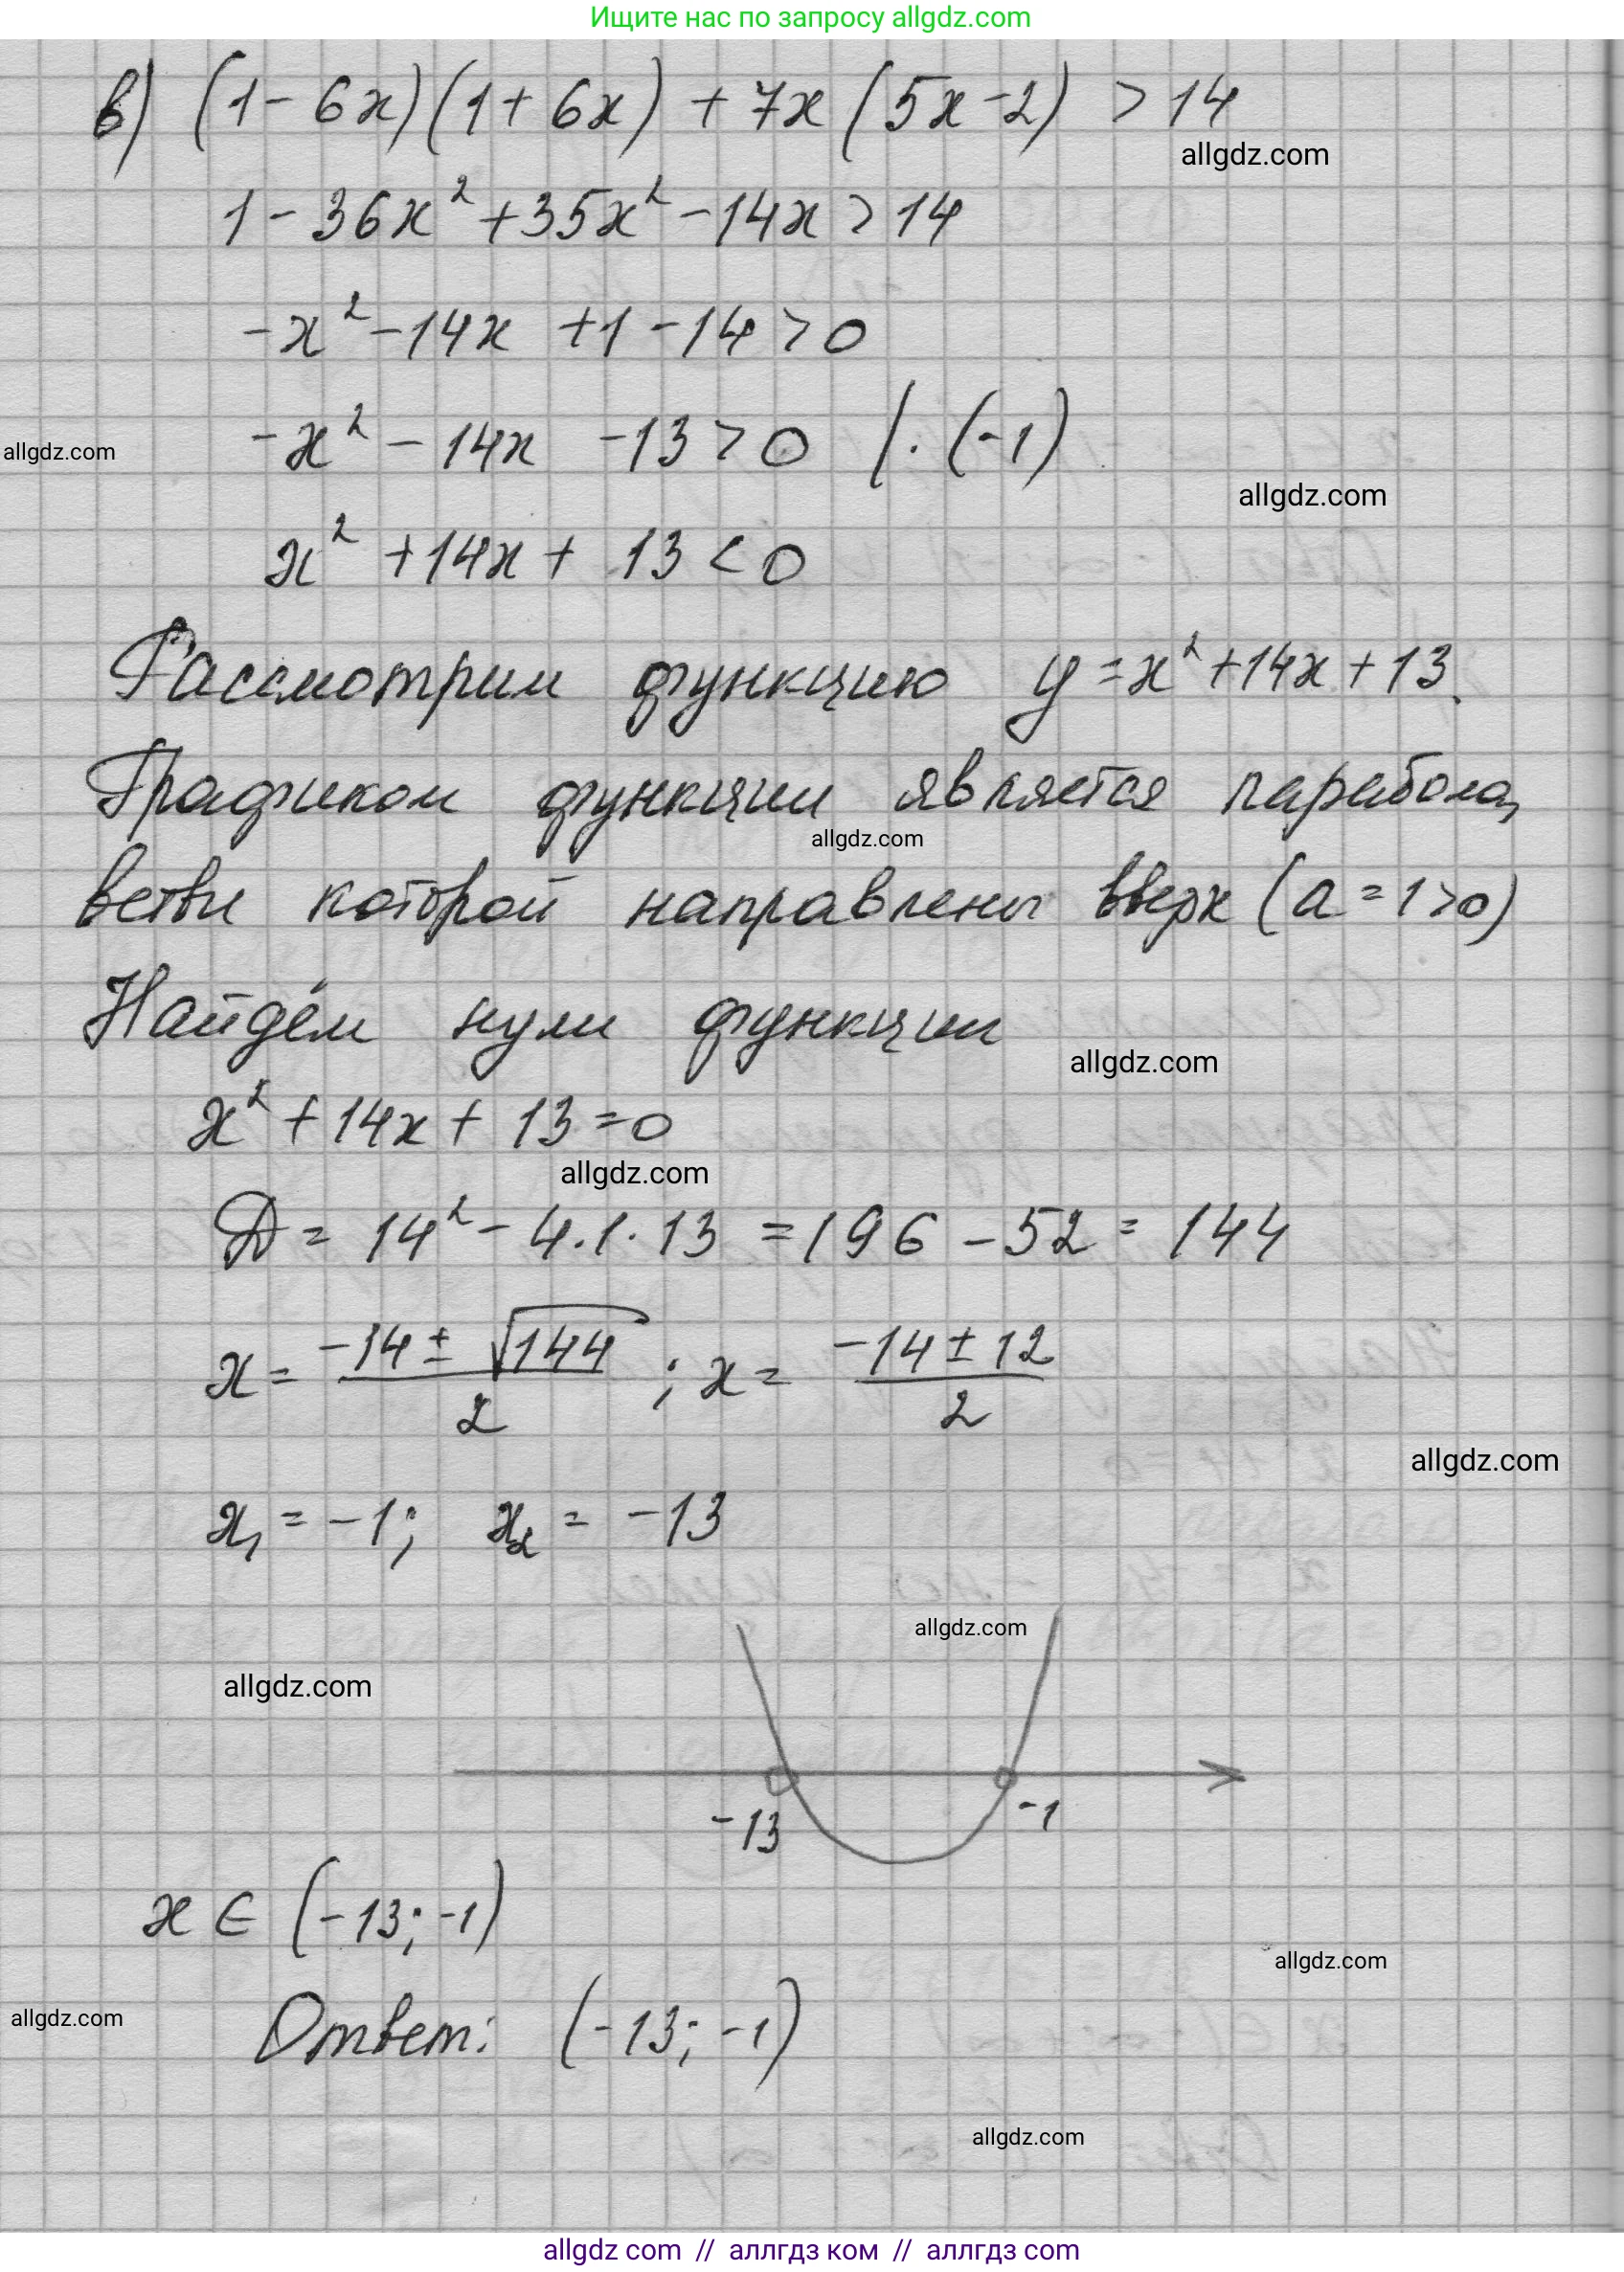 Ищите нас по запросу allgdz.com
в) (1 - 6x)(1 + 6x) + 7x (5x - 2) > 14
allgdz.com
1 - 36x² + 35x² - 14x > 14
-x² - 14x + 1 - 14 > 0
-x² - 14x - 13 > 0 | · (-1)
allgdz.com
allgdz.com
x² + 14x + 13 < 0
Рассмотрим функцию y = x² + 14x + 13.
Графиком функции является парабола,
allgdz.com
ветви которой направлены вверх (a = 1 > 0)
Найдём нули функции
allgdz.com
x² + 14x + 13 = 0
allgdz.com
D = 14² - 4 · 1 · 13 = 196 - 52 = 144
x = (-14 ± √144)/2 ; x = (-14 ± 12)/2
allgdz.com
x₁ = -1; x₂ = -13
allgdz.com
allgdz.com
-13 -1
x ∈ (-13; -1)
allgdz.com
allgdz.com
Ответ: (-13; -1)
allgdz.com
allgdz com // аллгдз ком // аллгдз com